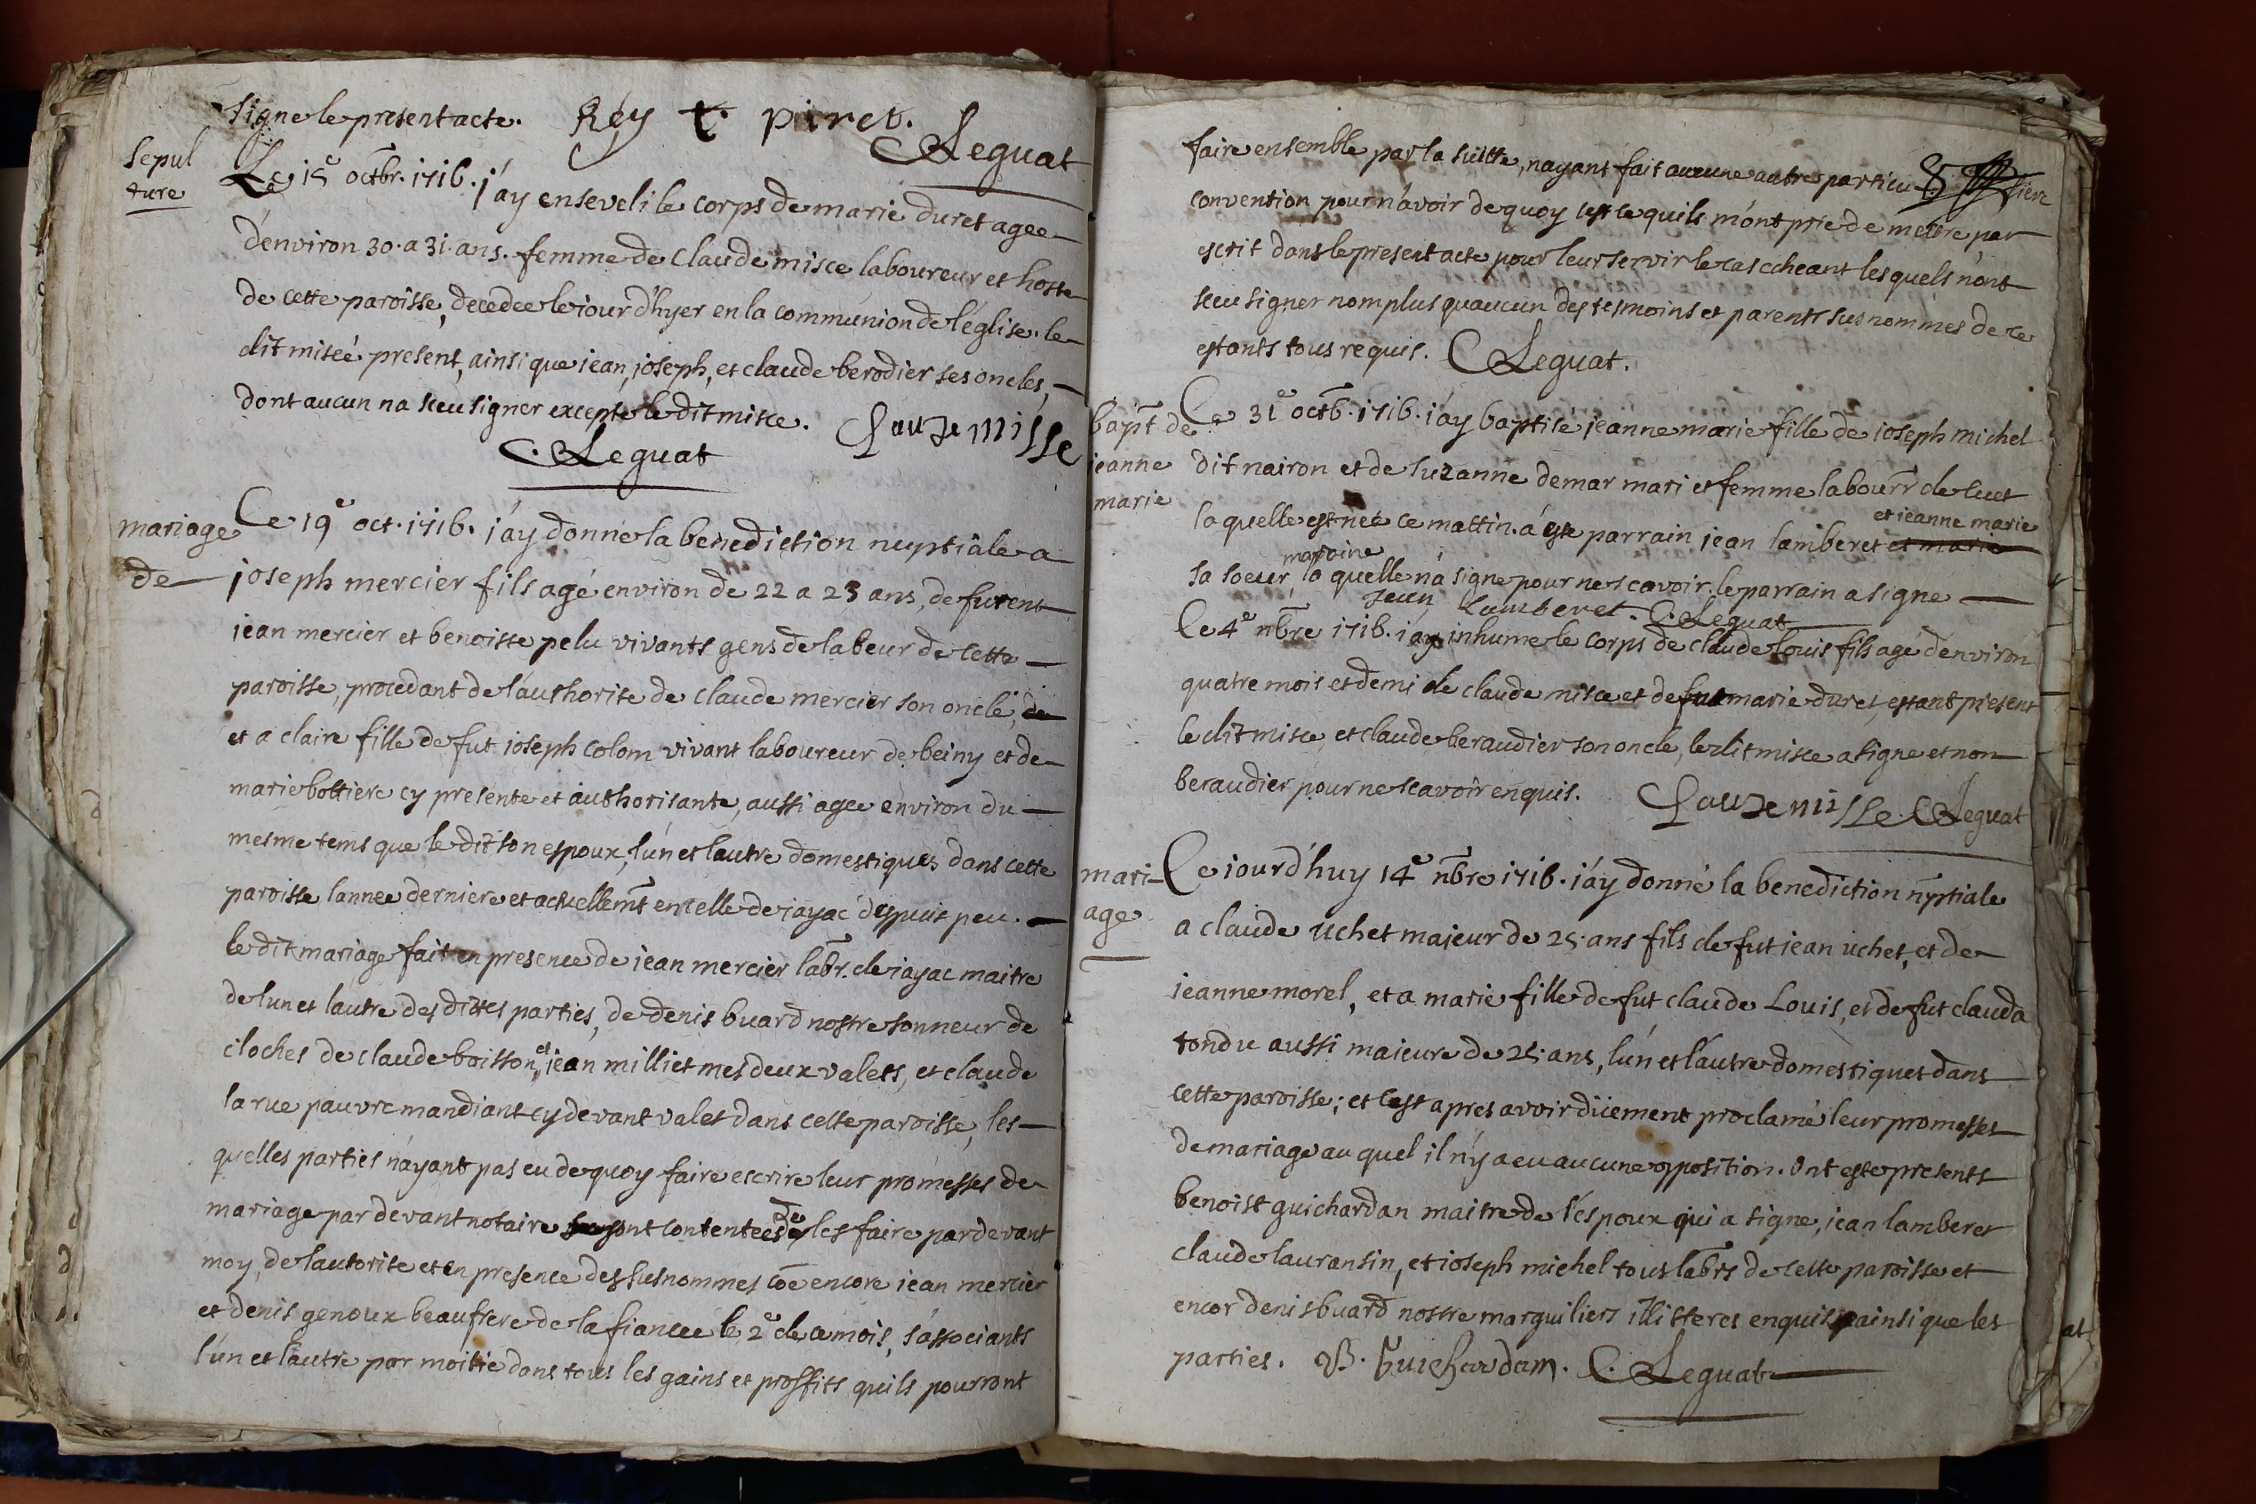 signe le present acte. Rey t. piret.
C Leguat
Sepul
ture
Le 15e octbr. 1716. j'ay enseveli le corps de marie duret agee
d'environ 30. a 31. ans. femme de Claude misce laboureur et hoste
de cette paroisse, decedee le jour d'hyer en la communion de l'eglise. le
dit miscé present, ainsi que jean, joseph, et claude berodier ses oncles,
dont aucun na sceu signer excepte le dit misce. Clauze misse
C. Leguat
mariage
de
Ce 19e oct. 1716. j'ay donné la benediction nuptiale a
joseph mercier fils agé environ de 22 a 23 ans, de furent
jean mercier et benoiste pelu vivants gens de labeur de cette
paroisse, procedant de l'authorite de claude mercier son oncle, de
et a claire fille de fut joseph colom vivant laboureur de beiny et de
marie bottiere cy presente et authorisante, aussi agee environ du
mesme tems que le dit son espoux, l'un et lautre domestiques dans cette
paroisse lannee derniere et actuellemt en celle de jayac despuis peu.
le dit mariage fait en presence de jean mercier labr. de jayac maitre
de lun et lautre des dittes parties, de denis buard nostre sonneur de
cloches de claude boisson, et jean milliet mes deux valets, et claude
la rue pauvre mandiant cy devant valet dans cette paroisse, les
quelles parties n'ayant pas eu de quoy faire escrire leur promesses de
mariage par devant notaire sont contentees de les faire par devant
moy, de lautorite et en presence des susnommes coe encore jean mercier
et denis genoux beaufrere de la fiancee le 2e de ce mois, s'associants
l'un et l'autre par moitie dans tous les gains et proffits quils pourront
8
faire ensemble par la suitte, nayant fait aucune autre particuliere
convention pour n'avoir de quoy cest ce quils m'ont prie de mettre par
escrit dans le present acte pour leur servir le cas echeant lesquels n'ont
sceu signer nomplus quaucun des tesmoins et parents susnommés de ce
estants tous requis. C Leguat.
bapt de
jeanne
marie
Ce 31e octb. 1716. j'ay baptisé jeanne marie fille de joseph michel
dit nairon et de suzanne demar mari et femme labourr de luet
la quelle est née ce mattin. a esté parrain jean lamberet et marie
et jeanne marie
sa soeur, marraine la quelle n'a signe pour ne scavoir. le parrain a signe
Jean Lamberet. C. Leguat
Ce 4e nbre 1716. j'ay inhume le corps de claude louis fils agé d'environ
quatre mois et demi de claude misce et de fut marie duret, estant present
le dit misce, et claude beraudier son oncle, le dit misce a signe et non
beraudier pour ne scavoir enquis. Clauze misse C Leguat
mari-
age
Ce jourd'huy 14e nbre 1716. j'ay donné la benediction nuptiale
a claude uchet majeur de 25. ans fils de fut jean uchet, et de
jeanne morel, et a marie fille de fut claude Louis, et de fut clauda
tondu aussi majeure de 25. ans, l'un et l'autre domestiques dans
cette paroisse; et c'est apres avoir düement proclamé leur promesses
de mariage au quel il n'y a eu aucune opposition. Ont esté presents
benoist guichardan maitre de l'espoux qui a signe, jean lamberet
claude lauransin, et joseph michel tous labrs de cette paroisse et
encor denis buard nostre marguiliers illitteres enquis ainsi que les
parties. B. Guichardam. C. Leguat